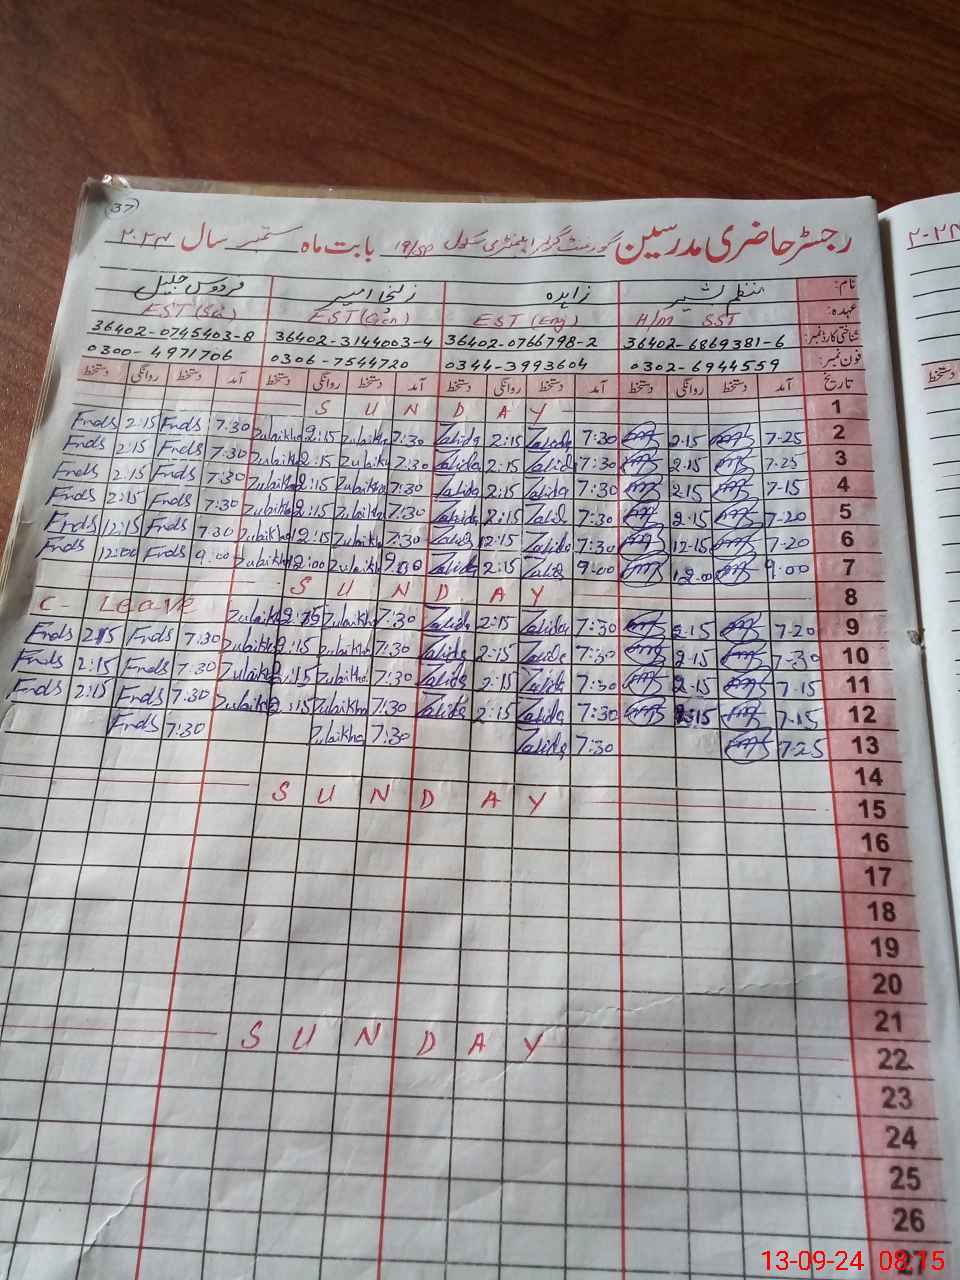 37
رجسٹر حاضری مدرسین گورنمنٹ گرلز ایلیمنٹری سکول 19/SP بابت ماہ ستمبر سال ۲۰۲۴
نام: زاہدہ زلیخا امیر فردوس جلیل
عہدہ: H/M SST EST (Eng) EST (Gen) EST (Sci)
شناختی کارڈ نمبر: 36402-6869381-6 36402-0766798-2 36402-3144003-4 36402-0745403-8
فون نمبر: 0302-6944559 0344-3993604 0306-7544720 0300-4971706
تاریخ آمد دستخط روانگی دستخط آمد دستخط روانگی دستخط آمد دستخط روانگی دستخط آمد دستخط روانگی دستخط
1 S U N D A Y
2 7-25 2.15 7:30 Zahida 2:15 Zahida 7:30 Zulaikha 2:15 Zulaikha 7.30 Frds 2:15 Frds
3 7-25 2.15 7:30 Zahida 2:15 Zahida 7:30 Zulaikha 2:15 Zulaikha 7.30 Frds 2:15 Frds
4 7-15 2.15 7:30 Zahida 2:15 Zahida 7:30 Zulaikha 2:15 Zulaikha 7:30 Frds 2:15 Frds
5 7-20 2.15 7:30 Zahida 2:15 Zahida 7:30 Zulaikha 2:15 Zulaikha 7:30 Frds 2:15 Frds
6 7-20 12-15 7:30 Zahida 12:15 Zahida 7:30 Zulaikha 12:15 Zulaikha 7.30 Frds 12:15 Frds
7 9:00 12.00 9:00 Zahida 2:15 Zahida 9:00 Zulaikha 12:00 Zulaikha 9:00 Frds 12:00 Frds
8 S U N D A Y
9 7-20 2.15 7:30 Zahida 2:15 Zahida 7:30 Zulaikha 2:15 Zulaikha C- Leave
10 7-30 2.15 7:30 Zahida 2:15 Zahida 7:30 Zulaikha 2:15 Zulaikha 7:30 Frds 2:15 Frds
11 7-15 2-15 7:30 Zahida 2:15 Zahida 7:30 Zulaikha 2:15 Zulaikha 7:30 Frds 2:15 Frds
12 7-15 2:15 7:30 Zahida 2:15 Zahida 7:30 Zulaikha 2:15 Zulaikha 7:30 Frds 2:15 Frds
13 7-25 7:30 Zahida 7:30 Zulaikha 7:30 Frds
14
15 S U N D A Y
16
17
18
19
20
21
22 S U N D A Y
23
24
25
26
27
۲۰۲۴
دستخط
13-09-24 08:15